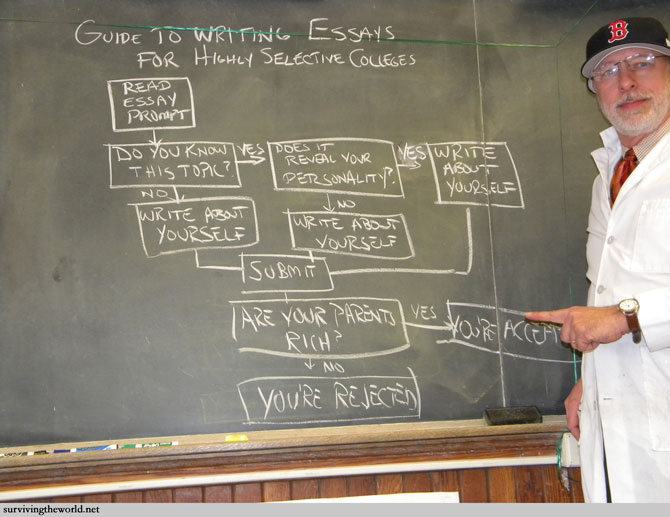 GUIDE TO WRITING ESSAYS
FOR HIGHLY SELECTIVE COLLEGES
READ
ESSAY
PROMPT
DO YOU KNOW
THIS TOPIC?
YES
DOES IT
REVEAL YOUR
PERSONALITY?
YES
WRITE
ABOUT
YOURSELF
NO
WRITE ABOUT
YOURSELF
NO
WRITE ABOUT
YOURSELF
SUBMIT
ARE YOUR PARENTS
RICH?
YES
YOU'RE ACCEPT
NO
YOU'RE REJECTED
B
survivingtheworld.net